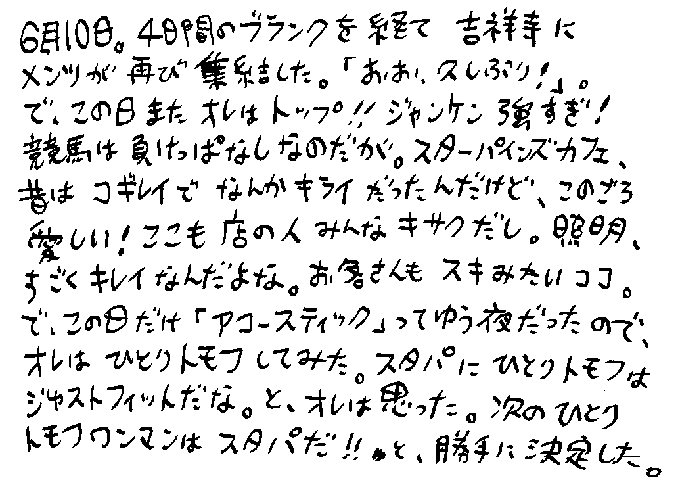 6月10日。4日間のブランクを経て 吉祥寺に
メンツが再び集結した。「おお、久しぶり!」。
で、この日またオレはトップ!!ジャンケン強すぎ!
競馬は負けっぱなしなのだが。スターパインズカフェ、
昔はコギレイでなんかキライだったんだけど、このごろ
愛しい!ここも店の人みんなキサクだし。照明、
すごくキレイなんだよな。お客さんもスキみたいココ。
で、この日だけ「アコースティック」ってゆう夜だったので、
オレはひとりトモフしてみた。スタパにひとりトモフは
ジャストフィットだな。と、オレは思った。次のひとり
トモフワンマンはスタパだ!!と、勝手に決定した。